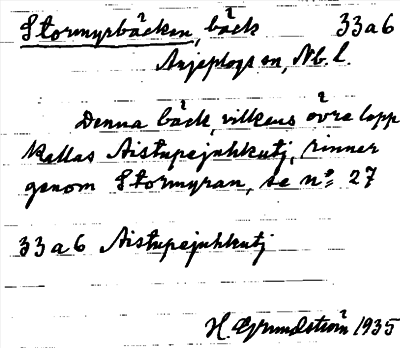 Stormyrbäcken, bäck 33a6
Arjeplogs sn, Nb. l.
Denna bäck, vilkens övre lopp
kallas Aistupejuhkutj, rinner
genom Stormyran, se no: 27
33a6 Aistupejuhkutj
H. Grundström 1935